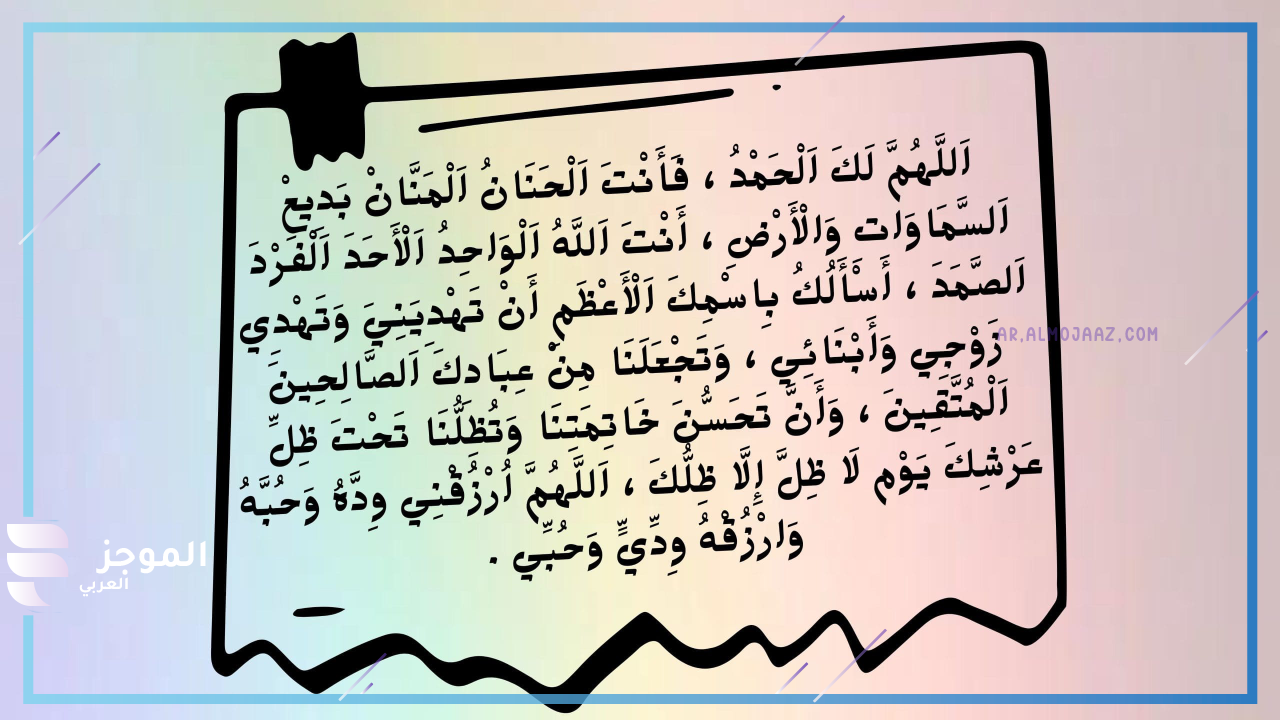 اَللَّهُمَّ لَكَ اَلْحَمْدُ ، فَأَنْتَ اَلْحَنَانُ اَلْمَنَّانْ بَدِيعْ
اَلسَّمَاوَات وَالْأَرْضِ ، أَنْتَ اَللَّهُ اَلْوَاحِدُ اَلْأَحَدَ اَلْفَرْدَ
اَلصَّمَدَ ، أَسْأَلُكُ بِاسْمِكَ اَلْأَعْظَمِ أَنْ تَهْدِيَنِيَ وَتَهْدِي
زَوْجِي وَأَبْنَائِي ، وَتَجْعَلَنَا مِنْ عِبَادكَ اَلصَّالِحِينَ
اَلْمُتَّقِينَ ، وَأَنَّ تَحَسُّنَ خَاتِمَتِنَا وَتُظَلُّنَا تَحْتَ ظِلِّ
عَرْشِكَ يَوْم لَا ظِلَّ إِلَّا ظِلُّكَ ، اَللَّهُمَّ اُرْزُقْنِي وِدَّهُ وَحُبَّهُ
وَارْزُقْهُ وِدِّيٍّ وَحُبِّي .
AR.ALMOJAAZ.COM
الموجز
العربي